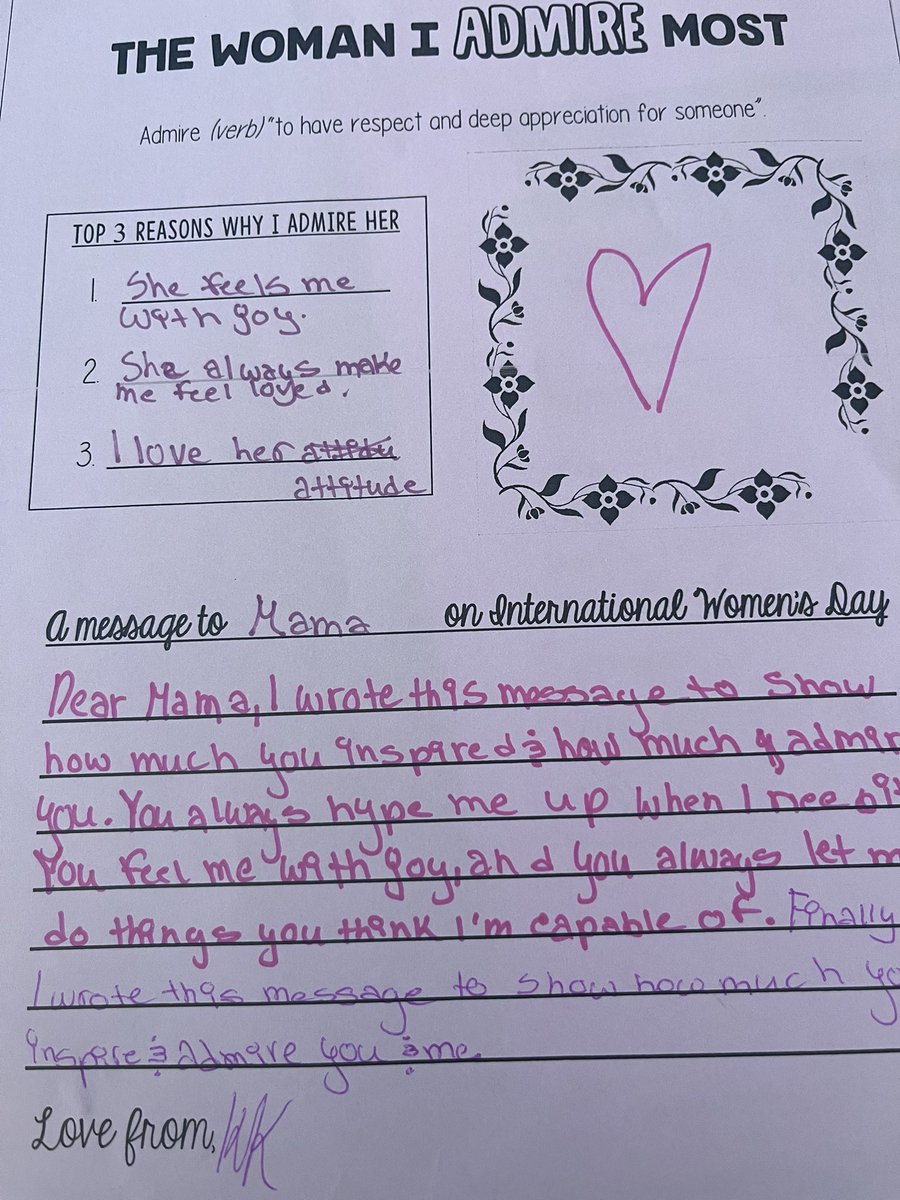 THE WOMAN I ADMIRE MOST
Admire (verb) "to have respect and deep appreciation for someone".
TOP 3 REASONS WHY I ADMIRE HER
1. She feels me
with joy.
2. She always make
me feel loved.
3. I love her attitu
attitude
A message to Mama on International Women's Day
Dear Mama, I wrote this message to show
how much you inspired & how much I admir
you. You always hype me up when I need it
You feel me with joy, and you always let m
do things you think I'm capable of. Finally
I wrote this message to show how much yo
inspire & admire you & me.
Love from, KK